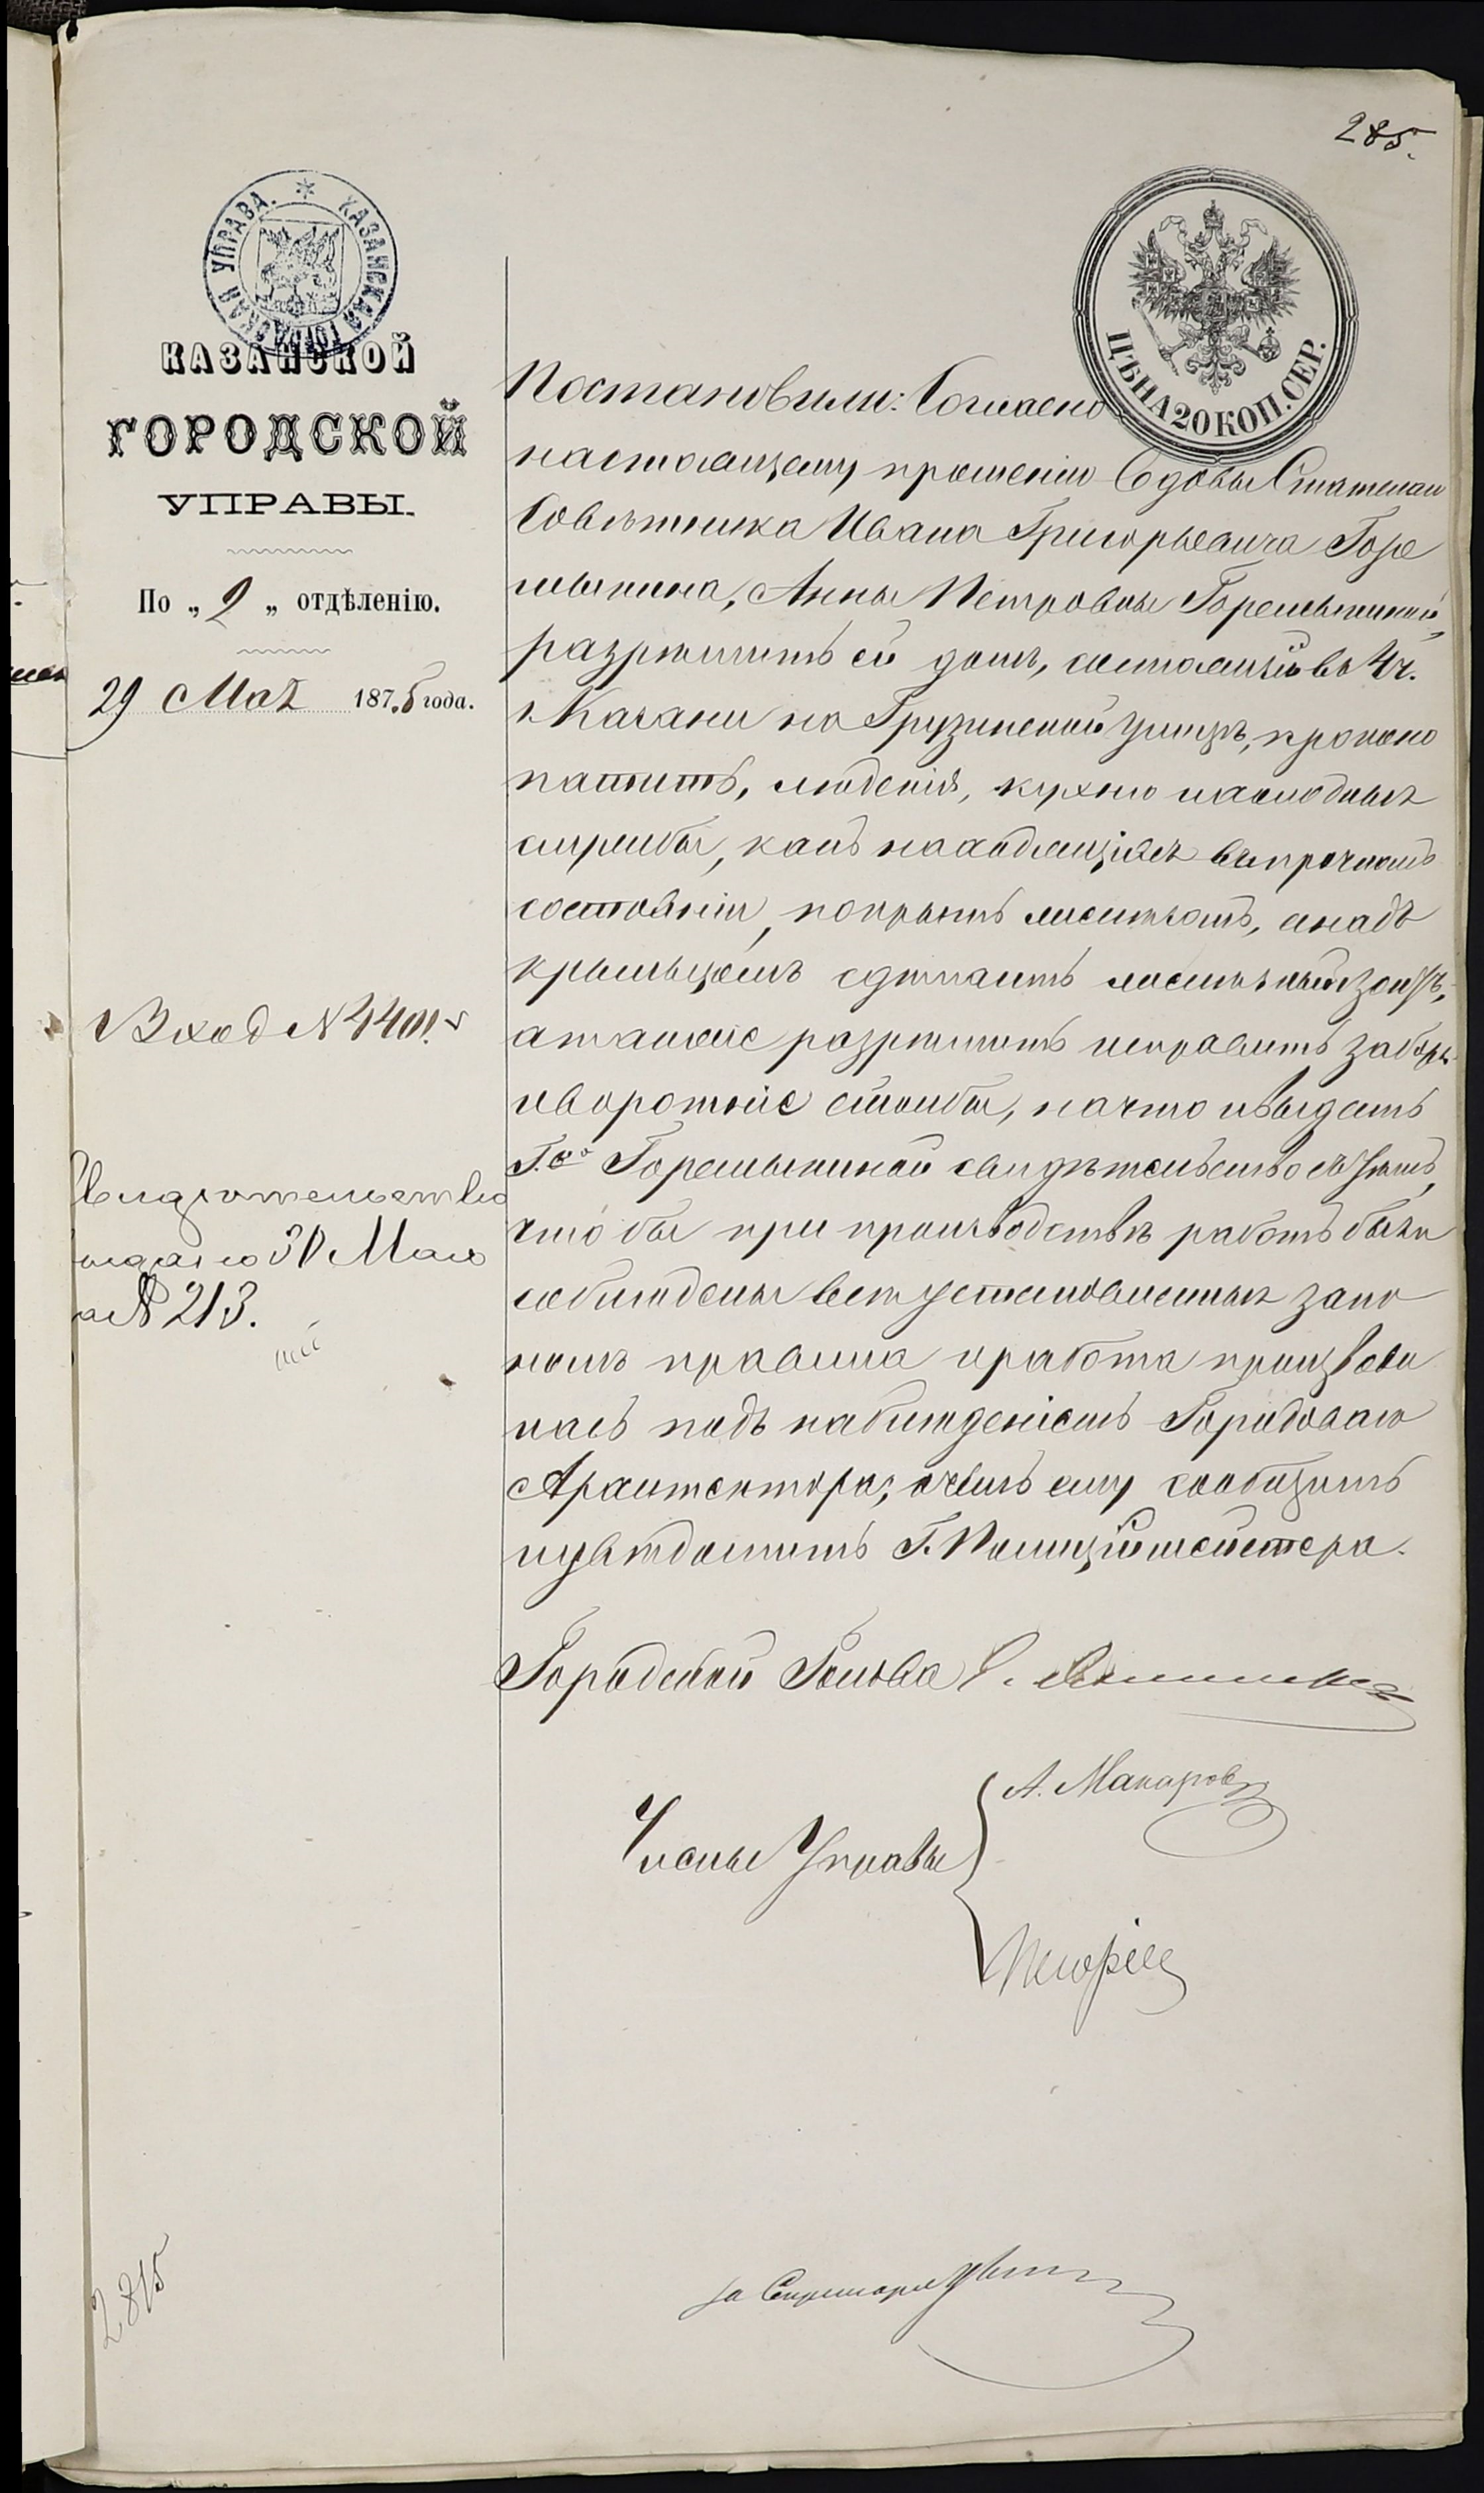 285.
КАЗАНСКАЯ ГОРОДСКАЯ УПРАВА.
ЦѢНА 20 КОП. СЕР.
КАЗАНСКОЙ
ГОРОДСКОЙ
УПРАВЫ.
По „2„ отдѣленію.
29 Мая 1875 года.
Вход № 4401.
Свидѣтельство
выдано 30 Мая
за № 213.
Постановили: Согласно
настоящему прошенію Вдовы Статскаго
Совѣтника Ивана Григорьевича Горе
мыкина, Анны Петровны Горемыкиной,
разрѣшить ей домъ, состоящій въ 4 ч.
г. Казани на Грузинской улицѣ, проконо
патить, людскія, кухню и холодныя
службы, какъ находящіяся въ прочномъ
состояніи, покрыть желѣзомъ, а надъ
крыльцомъ сдѣлать желѣзный зонтъ,
а также разрѣшить исправить заборъ
и воротные столбы, на что и выдать
Г.жѣ Горемыкиной свидѣтельство съ тѣмъ,
чтобы при производствѣ работъ были
соблюдены всѣ установленныя зако
номъ правила и работа производи
лась подъ наблюденіемъ Городоваго
Архитектора, о чемъ ему сообщить
и увѣдомить Г. Полиціймейстера.
Городской Голова
Члены Управы
А. Макаровъ
За Секретаря
2815